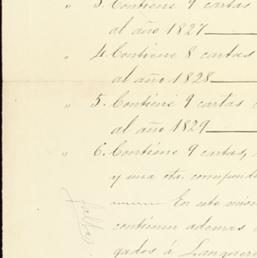 " 3. Contiene 9 cartas
al año 1827
" 4. Contiene 8 cartas
al año 1828
" 5. Contiene 9 cartas
al año 1829
" 6. Contiene 9 cartas,
y una ota. compend
En este
falta
contienen ademas
gados á Lanquer